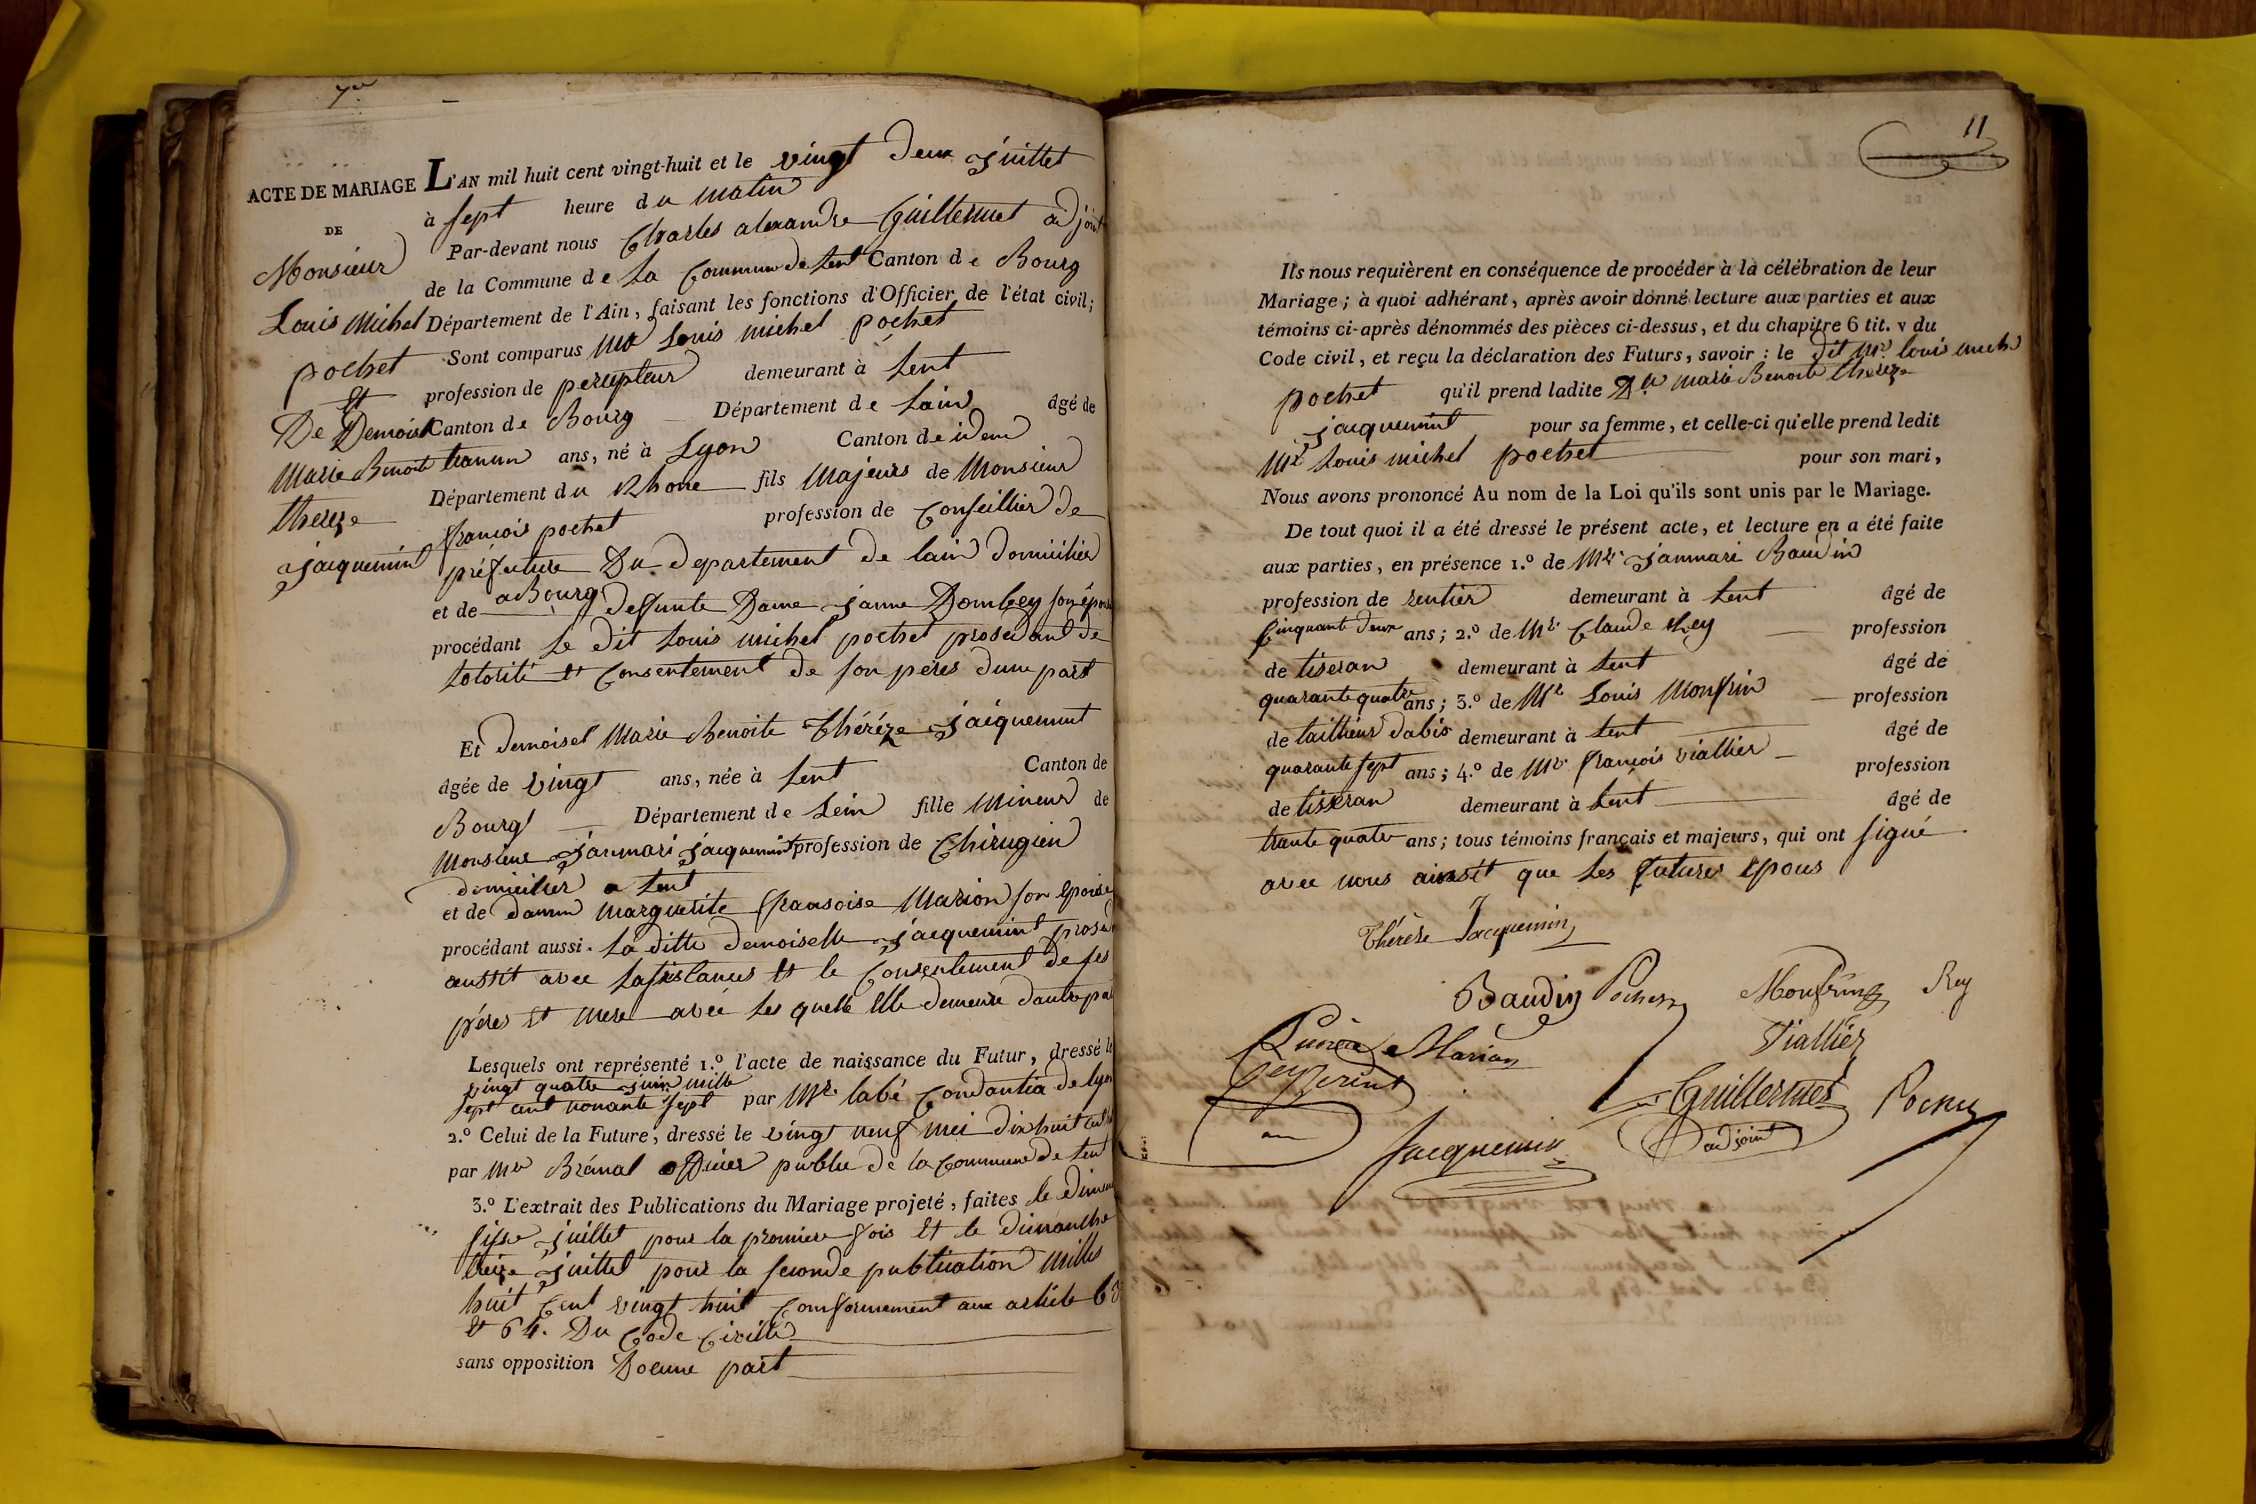 7e
ACTE DE MARIAGE
DE
Monsieur
Louis Michel
pochet
Et
De Demoisel
Marie Benoite
thereze
jacquemint
L'AN mil huit cent vingt-huit et le vingt deux juillet
à sept heure du matin
Par-devant nous Charles alexandre Guillermet adjoint
de la Commune de La Commune de Lent Canton de Bourg
Département de l'Ain, faisant les fonctions d'Officier de l'état civil;
Sont comparus Mr Louis michel pochet
profession de percepteur demeurant à Lent
Canton de Bourg Département de Lain âgé de
trantun ans, né à Lyon Canton de idem
Département du Rhone fils Majeurs de Monsieur
francois pochet profession de Conseillier de
préfecture Du departement de lain domicilier
a Bourg
et de deffunte Dame janne Dombey son épouse
procédant Le dit Louis michel pochet prosedant de
totorité et Consentement de son peres dune part
Et demoisel Marie Benoite Théréze jacquemint
âgée de vingt ans, née à Lent Canton de
Bourg Département de Lein fille Mineur de
Monsieur janmari jacquemint profession de Chirugien
domicilier a Lent
et de damm marguerite fransoise Marion son epoise
procédant aussi. La ditte demoiselle jacquemint prosed
aussit avec lasistances et le Consentement de ses
péres et mere avéc les quelle elle demeure dautre part
Lesquels ont représenté 1.º l'acte de naissance du Futur, dressé le
vingt quatre juin mille
sept cent nonante sept par Mr. labé Condantia de lyon
2.º Celui de la Future, dressé le vingt neuf mei dix huit cent
par Mr Brénal officier public de la Commune de Lent
3.º L'extrait des Publications du Mariage projeté, faites le diman
sisse juillet pour la promiere fois et le dimanche
treize juillet pour la seconde publication milles
huit Cent vingt huit Comformement aux article 63
et 64. Du Code Civille
sans opposition Docune part
11
Ils nous requièrent en conséquence de procéder à la célébration de leur
Mariage; à quoi adhérant, après avoir donné lecture aux parties et aux
témoins ci-après dénommés des pièces ci-dessus, et du chapitre 6 tit. v du
Code civil, et reçu la déclaration des Futurs, savoir: le dit Mr. louis mich
pochet qu'il prend ladite Dlle marie Benoite thereze
jacquemint pour sa femme, et celle-ci qu'elle prend ledit
Mr Louis michel pochet pour son mari,
Nous avons prononcé Au nom de la Loi qu'ils sont unis par le Mariage.
De tout quoi il a été dressé le présent acte, et lecture en a été faite
aux parties, en présence 1.º de Mr. janmari Baudin
profession de rentier demeurant à Lent âgé de
Cinquante deux ans; 2.º de Mr. Claude Rey profession
de tiseran demeurant à Lent âgé de
quarante quatre ans; 3.º de Mr Louis Monfrin profession
de taillieur dabis demeurant à Lent âgé de
quarante sept ans; 4.º de Mr. françois viallier profession
de tisseran demeurant à Lent âgé de
trante quatre ans; tous témoins français et majeurs, qui ont signé
avec nous ainsit que Les futures Epous
Thérèse Jacquemin
Baudin Pochet Monfrin Rey
Marion Viallier
Guillermet Pochet
adjoint
Jacquemin